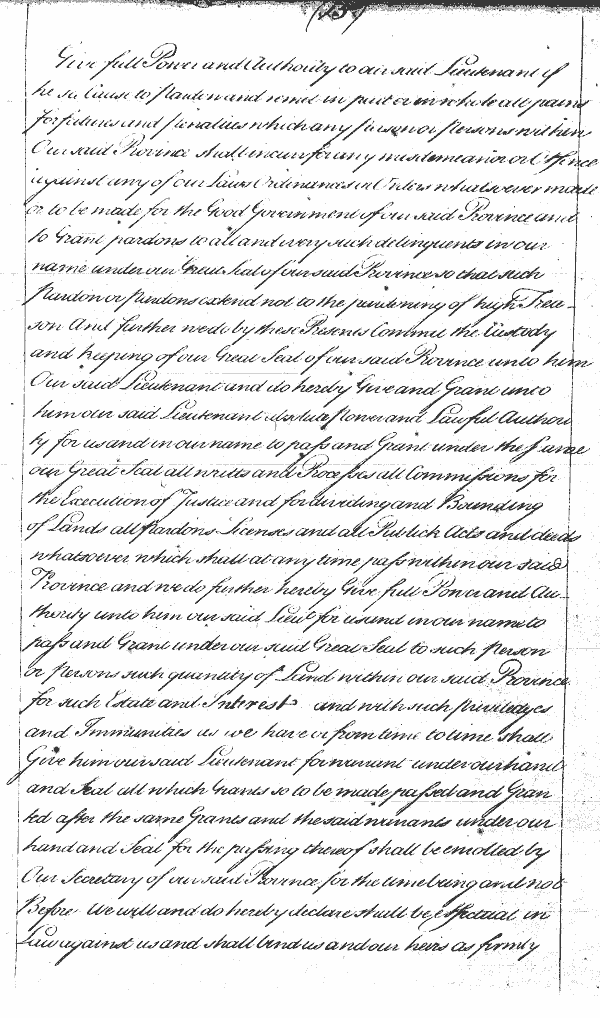 (13)
Give full Power and Authority to our said Lieutenant if
he so Cause to Pardon and remit in part or in whole all pains
forfeitures and penalties which any person or persons within
Our said Province shall incur for any misdemeanior or Offence
against any of our Laws Ordinances or Orders whatsoever made
or to be made for the Good Government of our said Province and
to Grant pardons to all and every such delinquents in our
name under our Great Seal of our said Province so that such
Pardon or Pardons extend not to the pardening of high Trea-
son And further we do by these Presents Commit the Custody
and keeping of our Great Seal of our said Province unto him
Our said Lieutenant and do hereby Give and Grant unto
him our said Lieutenant absolute Power and Lawful Authori
ty for us and in our name to pass and Grant under the same
our Great Seal all writts and Processes all Commissions for
the Execution of Justice and for dividing and Bounding
of Lands all Pardons Licenses and all Publick Acts and deeds
whatsoever which shall at any time pass within our said
Province and we do further hereby Give full Power and Au-
thority unto him our said Lieut for us and in our name to
pass and Grant under our said Great Seal to such Person
or Persons such quantity of Land within our said Province
for such Estate and Interest and with such priviledges
and Immunities as we have or from time to time shall
Give him our said Lieutenant for warrent under our hand
and Seal all which Grants so to be made passed and Gran
ted after the same Grants and the said warrants under our
hand and Seal for the passing thereof shall be enrolled by
Our Secretary of our said Province for the time being and not
Before We will and do hereby declare shall be effectual in
Law against us and shall bind us and our heirs as firmly